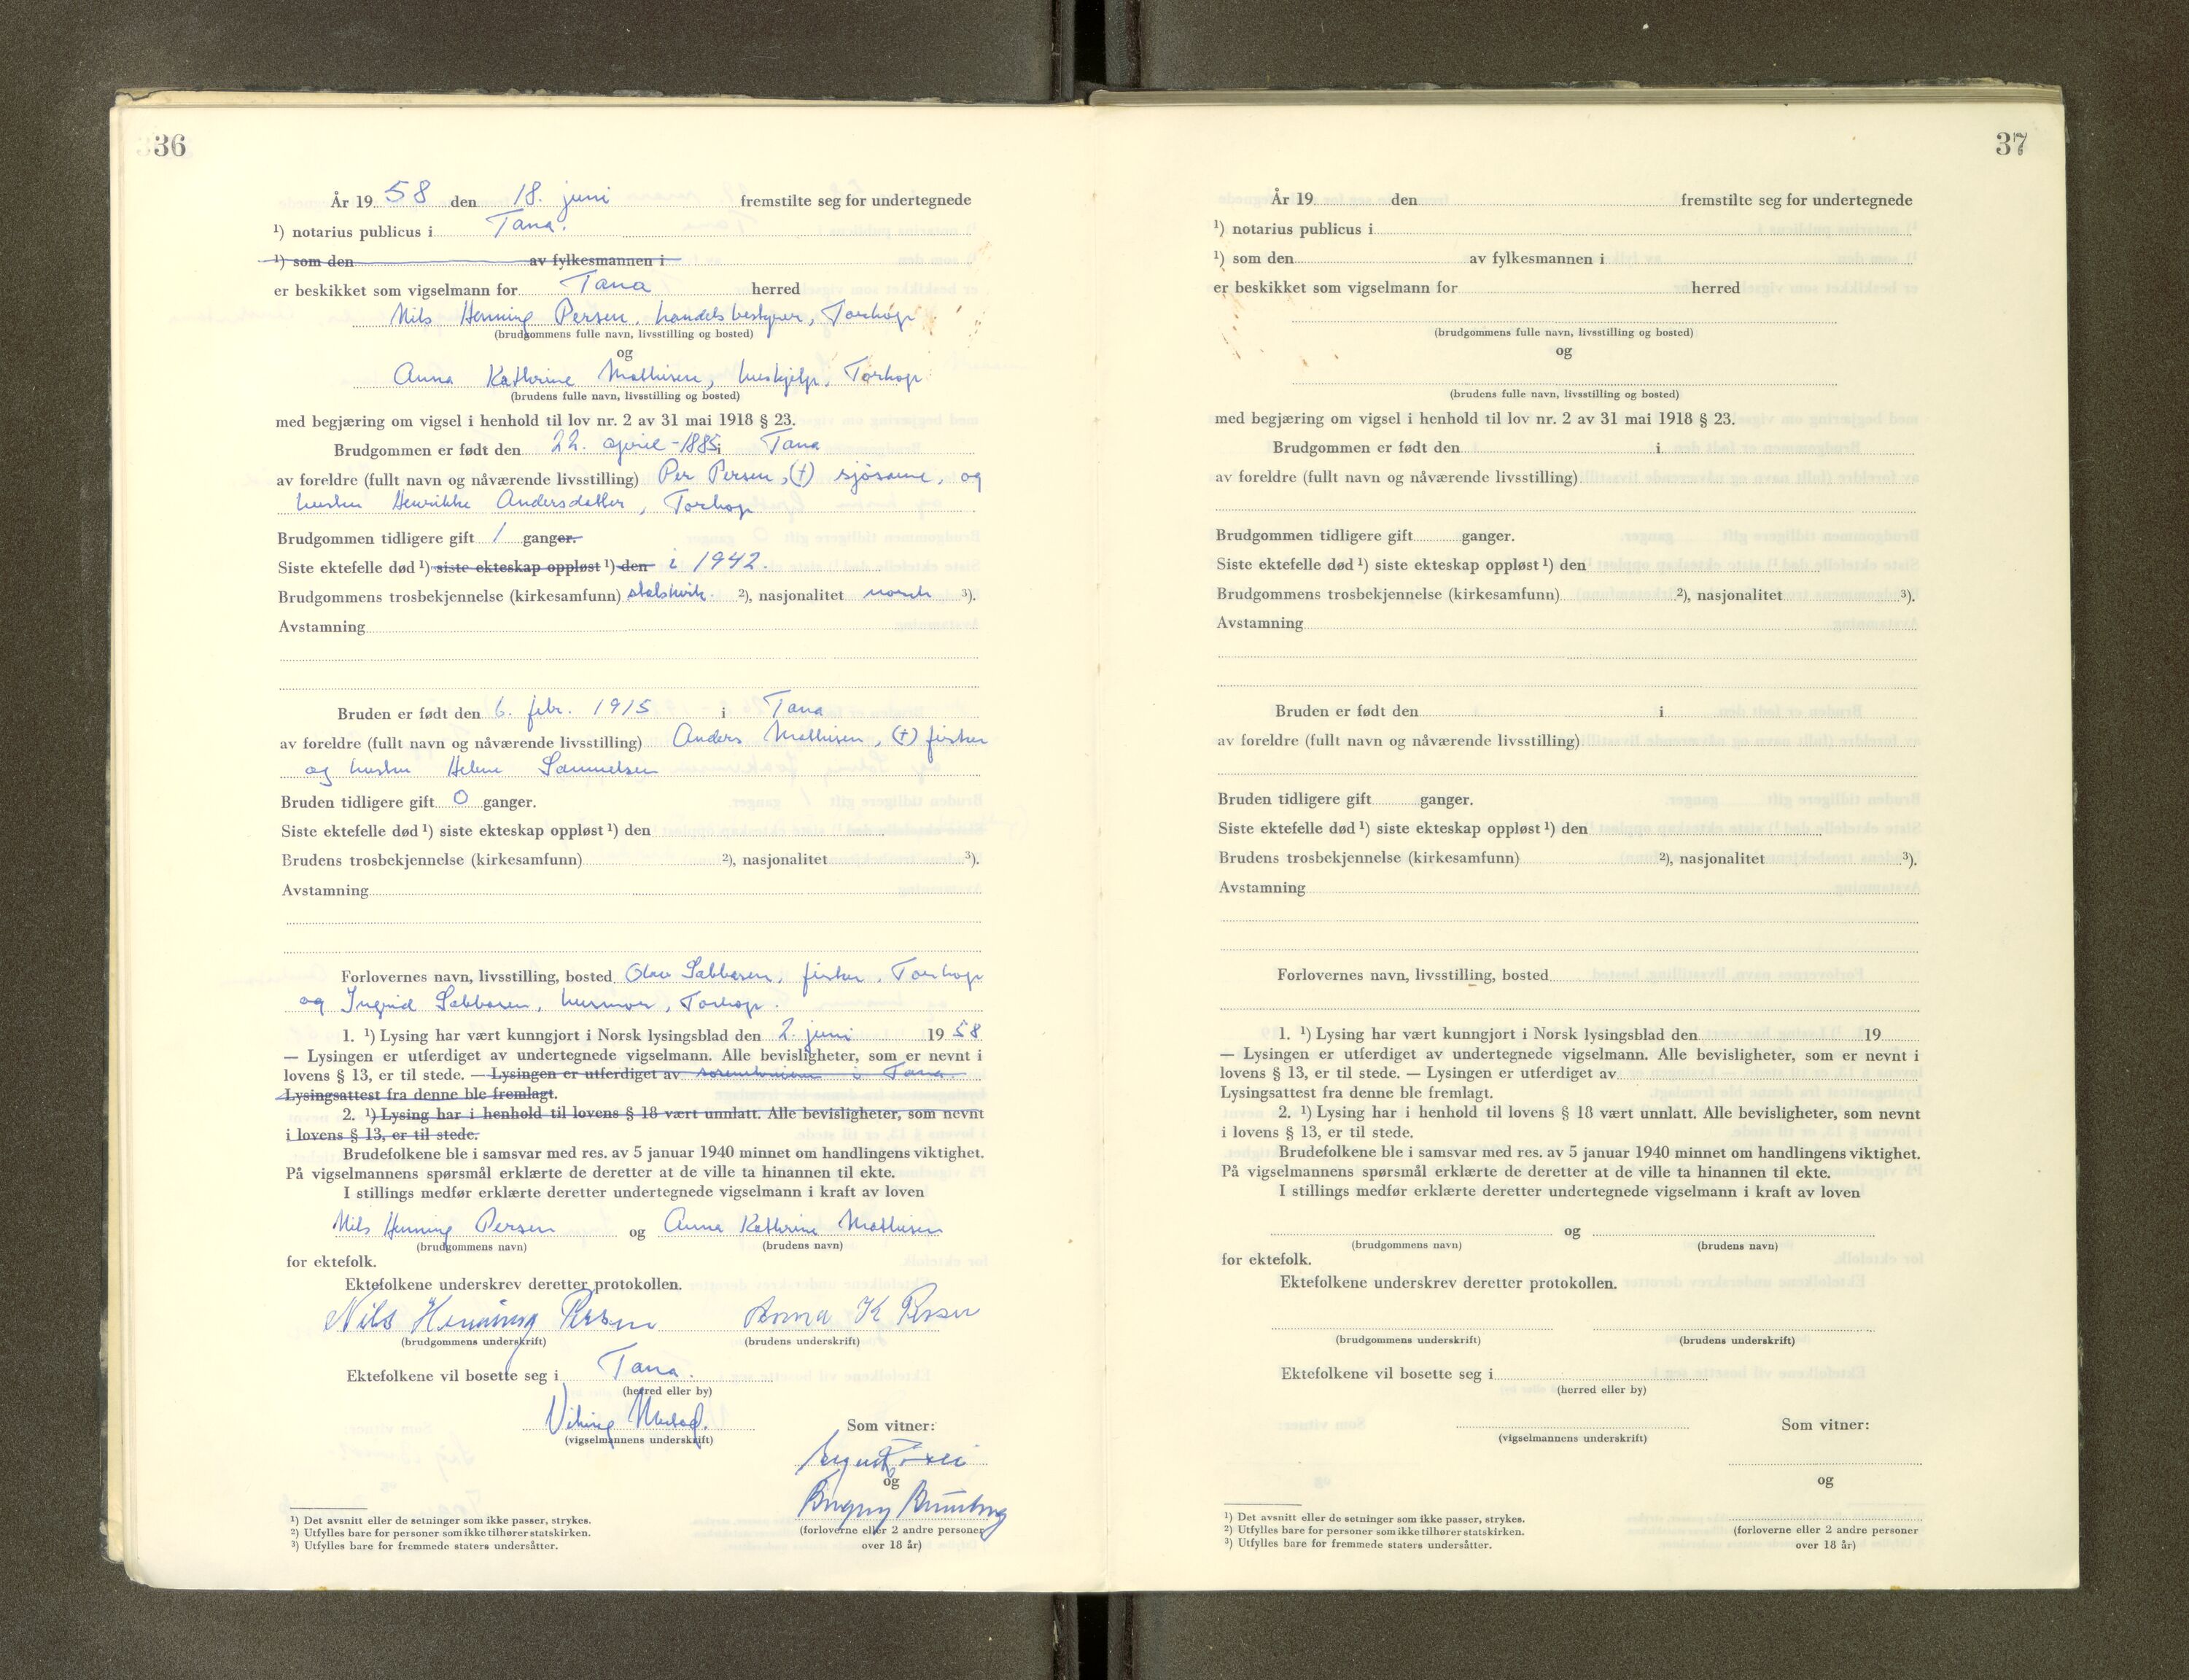 36
År 19 58 den 18. juni fremstilte seg for undertegnede
¹) notarius publicus i Tana.
¹) som den av fylkesmannen i
er beskikket som vigselmann for Tana herred
Nils Henning Persen, handelsbestyrer, Torhop
(brudgommens fulle navn, livsstilling og bosted)
og
Anna Kathrine Mathisen, hushjelp, Torhop
(brudens fulle navn, livsstilling og bosted)
med begjæring om vigsel i henhold til lov nr. 2 av 31 mai 1918 § 23.
Brudgommen er født den 22. april - 1885 i Tana
av foreldre (fullt navn og nåværende livsstilling) Per Persen, (†) sjøsame, og
hustru Henrikke Andersdatter, Torhop
Brudgommen tidligere gift 1 ganger.
Siste ektefelle død ¹) siste ekteskap oppløst ¹) den i 1942.
Brudgommens trosbekjennelse (kirkesamfunn) statskirk. ²), nasjonalitet norsk ³).
Avstamning
Bruden er født den 6. febr. 1915 i Tana
av foreldre (fullt navn og nåværende livsstilling) Anders Mathisen, (†) fisker
og hustru Helene Samuelsen
Bruden tidligere gift 0 ganger.
Siste ektefelle død ¹) siste ekteskap oppløst ¹) den
Brudens trosbekjennelse (kirkesamfunn) ²), nasjonalitet ³).
Avstamning
Forlovernes navn, livsstilling, bosted Olav Sabbasen, fisker, Torhop
og Ingrid Sabbasen, husmor, Torhop.
1. ¹) Lysing har vært kunngjort i Norsk lysingsblad den 2. juni 19 58
— Lysingen er utferdiget av undertegnede vigselmann. Alle bevisligheter, som er nevnt i
lovens § 13, er til stede. — Lysingen er utferdiget av sorenskriveren i Tana.
Lysingsattest fra denne ble fremlagt.
2. ¹) Lysing har i henhold til lovens § 18 vært unnlatt. Alle bevisligheter, som nevnt
i lovens § 13, er til stede.
Brudefolkene ble i samsvar med res. av 5 januar 1940 minnet om handlingens viktighet.
På vigselmannens spørsmål erklærte de deretter at de ville ta hinannen til ekte.
I stillings medfør erklærte deretter undertegnede vigselmann i kraft av loven
Nils Henning Persen og Anna Kathrine Mathisen
(brudgommens navn) (brudens navn)
for ektefolk.
Ektefolkene underskrev deretter protokollen.
Nils Henning Persen Anna K Persen
(brudgommens underskrift) (brudens underskrift)
Ektefolkene vil bosette seg i Tana.
(herred eller by)
Viking
(vigselmannens underskrift)
Som vitner:
og
(forloverne eller 2 andre personer
over 18 år)
¹) Det avsnitt eller de setninger som ikke passer, strykes.
²) Utfylles bare for personer som ikke tilhører statskirken.
³) Utfylles bare for fremmede staters undersåtter.
37
År 19 den fremstilte seg for undertegnede
¹) notarius publicus i
¹) som den av fylkesmannen i
er beskikket som vigselmann for herred
(brudgommens fulle navn, livsstilling og bosted)
og
(brudens fulle navn, livsstilling og bosted)
med begjæring om vigsel i henhold til lov nr. 2 av 31 mai 1918 § 23.
Brudgommen er født den i
av foreldre (fullt navn og nåværende livsstilling)
Brudgommen tidligere gift ganger.
Siste ektefelle død ¹) siste ekteskap oppløst ¹) den
Brudgommens trosbekjennelse (kirkesamfunn) ²), nasjonalitet ³).
Avstamning
Bruden er født den i
av foreldre (fullt navn og nåværende livsstilling)
Bruden tidligere gift ganger.
Siste ektefelle død ¹) siste ekteskap oppløst ¹) den
Brudens trosbekjennelse (kirkesamfunn) ²), nasjonalitet ³).
Avstamning
Forlovernes navn, livsstilling, bosted
1. ¹) Lysing har vært kunngjort i Norsk lysingsblad den 19
— Lysingen er utferdiget av undertegnede vigselmann. Alle bevisligheter, som er nevnt i
lovens § 13, er til stede. — Lysingen er utferdiget av
Lysingsattest fra denne ble fremlagt.
2. ¹) Lysing har i henhold til lovens § 18 vært unnlatt. Alle bevisligheter, som nevnt
i lovens § 13, er til stede.
Brudefolkene ble i samsvar med res. av 5 januar 1940 minnet om handlingens viktighet.
På vigselmannens spørsmål erklærte de deretter at de ville ta hinannen til ekte.
I stillings medfør erklærte deretter undertegnede vigselmann i kraft av loven
og
(brudgommens navn) (brudens navn)
for ektefolk.
Ektefolkene underskrev deretter protokollen.
(brudgommens underskrift) (brudens underskrift)
Ektefolkene vil bosette seg i
(herred eller by)
Som vitner:
(vigselmannens underskrift)
og
(forloverne eller 2 andre personer
over 18 år)
¹) Det avsnitt eller de setninger som ikke passer, strykes.
²) Utfylles bare for personer som ikke tilhører statskirken.
³) Utfylles bare for fremmede staters undersåtter.